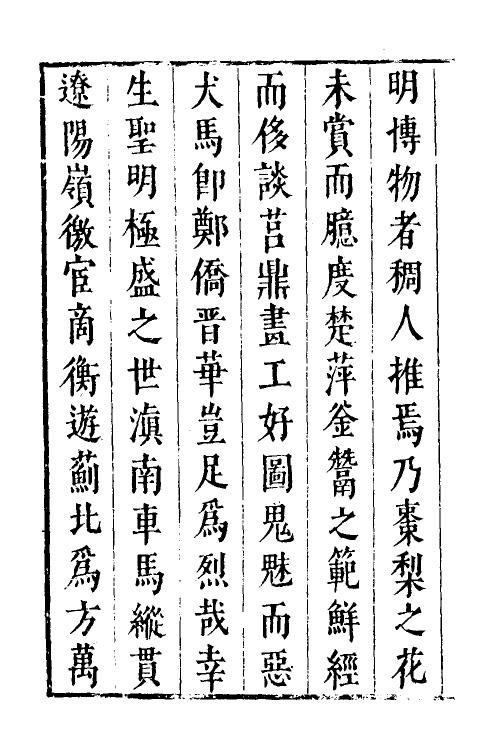 明博物者稠人推焉乃棗梨之花
未賞而臆度楚萍釜鬵之範鮮經
而侈談莒鼎畫工好圖鬼魅而惡
犬馬卽鄭僑晋華豈足爲烈哉幸
生聖明極盛之世滇南車馬縱貫
遼陽嶺徼宦商衡遊薊北爲方萬